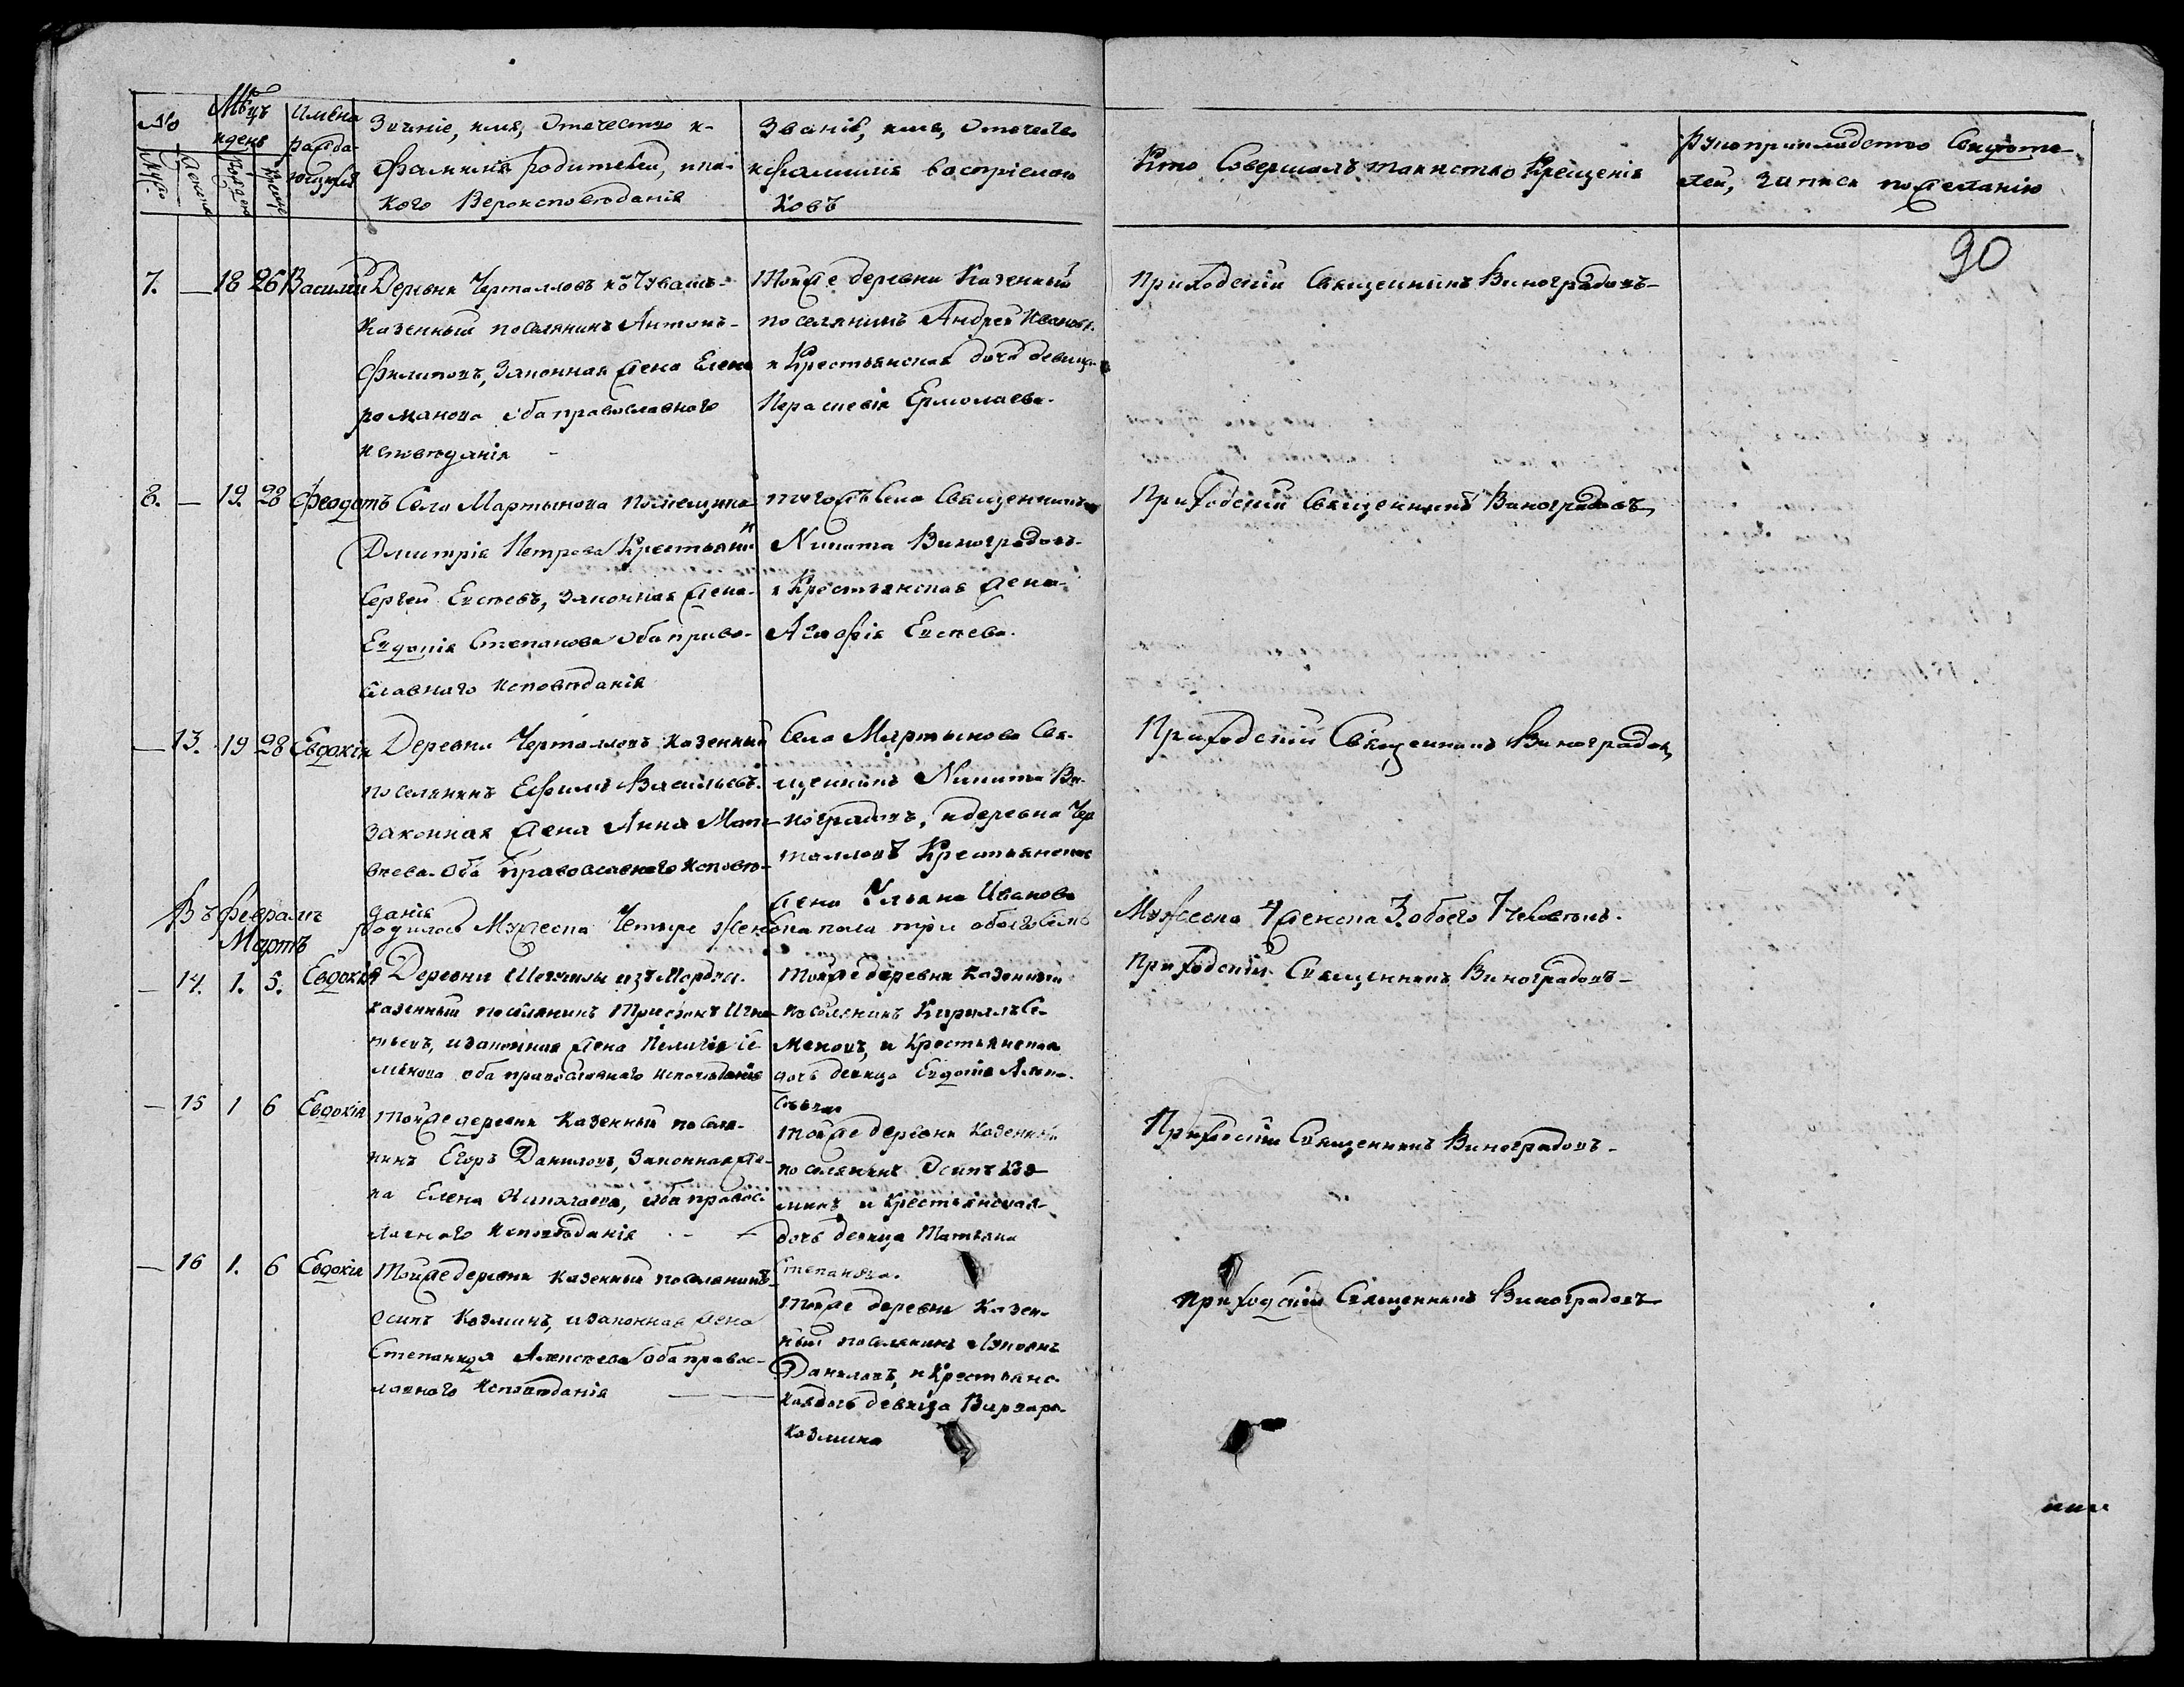 № Мѣцъ и день Имена раждающихся Званіе, имя, отечество и фамилія родителей, и какого Вероисповѣданія
Званіе, имя, отечество и фамилія воспріемниковъ
Кто Совершалъ таинство Крещенія
Рукоприкладство Свидѣтелей, записи по желанію
90
7. — 18 26 Василій Деревни Черталловъ изъ Чувашъ
казенный поселянинъ Антонъ
Филиповъ, законная жена Елена
романова оба православного
исповѣданія
Тойже деревни Казенный
поселянинъ Андрей Ивановъ
и Крестьянская дочь девица
Параскевія Ермолаева
Приходскій Священникъ Виноградовъ
8. — 19. 28 Феодотъ Села Мартынова помещика
Дмитрія Петрова Крестьянинъ
Сергей Евсеевъ, законная жена
Евдокія Степанова оба право-
славнаго исповѣданія
тогожъ Села Священникъ
Никита Виноградовъ
и Крестьянская жена
Агафія Евсеева.
Приходскій Священникъ Виноградовъ
— 13. 19 28 Евдокія Деревни Черталловъ казенный
поселянинъ Ефимъ Васильевъ
законная жена Анна Мат-
веева оба православнаго исповѣ-
данія
Села Мартынова Свя-
щенникъ Никита Ви-
ноградовъ, и деревни Чер
талловъ Крестьянская
жена Ульяна Иванова
Приходскій Священникъ Виноградовъ
Въ Февралѣ родилось Мужеска Четыре Женска пола три обоего Семь
Мужеска 4 Женска 3. обоего 7 человѣкъ.
Мартъ
— 14. 1. 5. Евдокія Деревни изъ Мордвы
казенный поселянинъ Трифонъ Игна-
тьевъ, и законная жена Пелагія Се
мёнова оба православнаго исповѣданія
Тойже деревни казенный
поселянинъ Кириллъ Се-
меновъ, и Крестьянская
дочь девица Евдокія Алек-
сѣева
Приходскій Священникъ Виноградовъ
— 15 1 6 Евдокія тойже деревни казенный поселя-
нинъ Егоръ Даниловъ, законная же-
на Елена Николаева, оба правос-
лавнаго исповѣданія
тойже деревни Казенный
поселянинъ Осипъ Коз-
минъ и Крестьянская
дочь девица Татьяна
Степанова.
Приходскій Священникъ Виноградовъ
— 16 1. 6 Евдокія Тойже деревни казенный поселянинъ
Осипъ Козминъ, и законная жена
Степанида Алексеева оба правос-
лавного исповѣданія
тойже деревни Казен-
ный поселянинъ
Даниловъ, и Крестьянс-
кая дочь девица Варвара
Козмина
приходскій Священникъ Виноградовъ